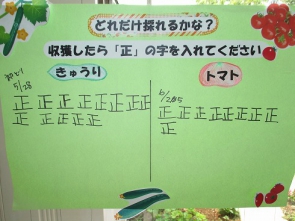 どれだけ採れるかな?
収穫したら「正」の字を入れてください
きゅうり
トマト
5/28
正 正 正 正 正 正 正 正
正 正 正 正 正
正 正 正 正 正 正 正 正
正